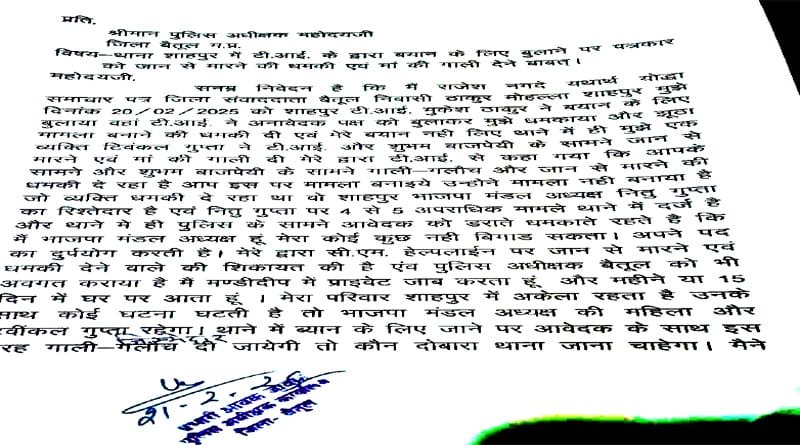 प्रति,
श्रीमान पुलिस अधीक्षक महोदयजी
जिला बैतूल म.प्र.
विषय–थाना शाहपुर में टी.आई. के द्वारा बयान के लिए बुलाने पर पत्रकार
को जान से मारने की धमकी एवं मां की गाली देने बाबत।
महोदयजी,
सनम्र निवेदन है कि मैं राजेश नगदे यथार्थ योद्धा
समाचार पत्र जिला संवाददाता बैतूल निवासी ठाकुर मोहल्ला शाहपुर मुझे
दिनांक 20/02/2025 को शाहपुर टी.आई. मुकेश ठाकुर ने बयान के लिए
बुलाया वहां टी.आई. ने अनावेदक पक्ष को बुलाकर मुझे धमकाया और झूठा
मामला बनाने की धमकी दी एवं मेरे बयान नही लिए थाने में ही मुझे एक
व्यक्ति टिवंकल गुप्ता ने टी.आई. और शुभम बाजपेयी के सामने जान से
मारने एवं मां की गाली दी मेरे द्वारा टी.आई. से कहा गया कि आपके
सामने और शुभम बाजपेयी के सामने गाली–गलौच और जान से मारने की
धमकी दे रहा है आप इस पर मामला बनाइये उन्होने मामला नही बनाया है
जो व्यक्ति धमकी दे रहा था वो शाहपुर भाजपा मंडल अध्यक्ष नितु गुप्ता
का रिश्तेदार है एवं नितु गुप्ता पर 4 से 5 अपराधिक मामले थाने में दर्ज है
और थाने मे ही पुलिस के सामने आवेदक को डराते धमकाते रहते है कि
मैं भाजपा मंडल अध्यक्ष हूं मेरा कोई कुछ नही बिगाड सकता। अपने पद
का दुर्पयोग करती है। मेरे द्वारा सी.एम. हेल्पलाईन पर जान से मारने एवं
धमकी देने वाले की शिकायत की है एंव पुलिस अधीक्षक बैतूल को भी
अवगत कराया है मैं मण्डीदीप में प्राइवेट जाब करता हूं और महीने या 15
दिन में घर पर आता हूं । मेरा परिवार शाहपुर में अकेला रहता है उनके
साथ कोई घटना घटती है तो भाजपा मंडल अध्यक्ष की महिला और
वींकल गुप्ता रहेगा। थाने में ब्यान के लिए जाने पर आवेदक के साथ इस
रह गाली–गलौच दी जायेगी तो कौन दोबारा थाना जाना चाहेगा। मैने
21-2-25
आवक
पुलिस अधीक्षक कार्यालय
जिला- बैतूल